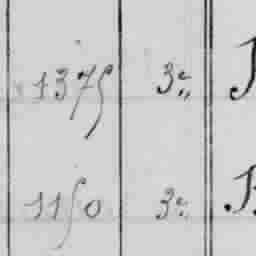 1375 3:
1150 3: